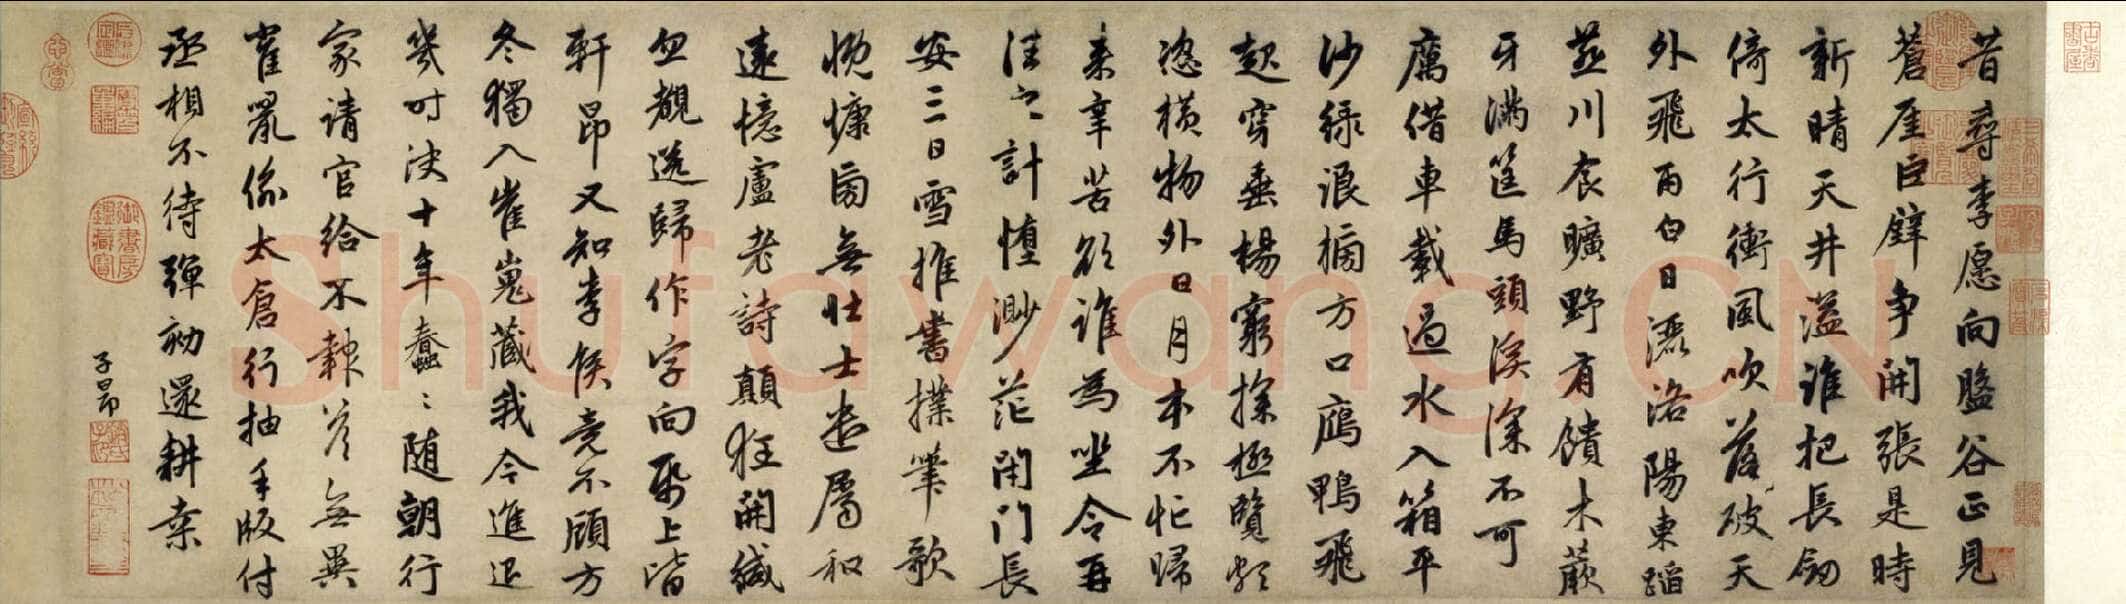 昔尋李愿向盤谷正見
蒼厓巨壁争開張是時
新晴天井溢誰把長劒
倚太行衝風吹落破天
外飛雨白日灑洛陽東蹈
燕川食曠野有饋木蕨
牙滿筐馬頭溪深不可
厲借車載過水入箱平
沙綠浪搒方口鴈鴨飛
起穿垂楊窮探極覽頗
恣橫物外日月本不忙歸
来辛苦欲誰為坐令再
往之計墮渺茫閉門長
安三日雪推書撲筆歌
慨慷旁無壯士遣屬和
遠憶盧老詩顛狂開緘
忽覩送歸作字向紙上皆
軒昂又知李侯竟不顧方
冬獨入崔嵬藏我今進退
幾时决十年蠢〻随朝行
家請官給不報答無異
雀鼠偷太倉行抽手版付
丞相不待彈劾還耕桒
子昂
御書房鑑藏寶
Shufawang.CN